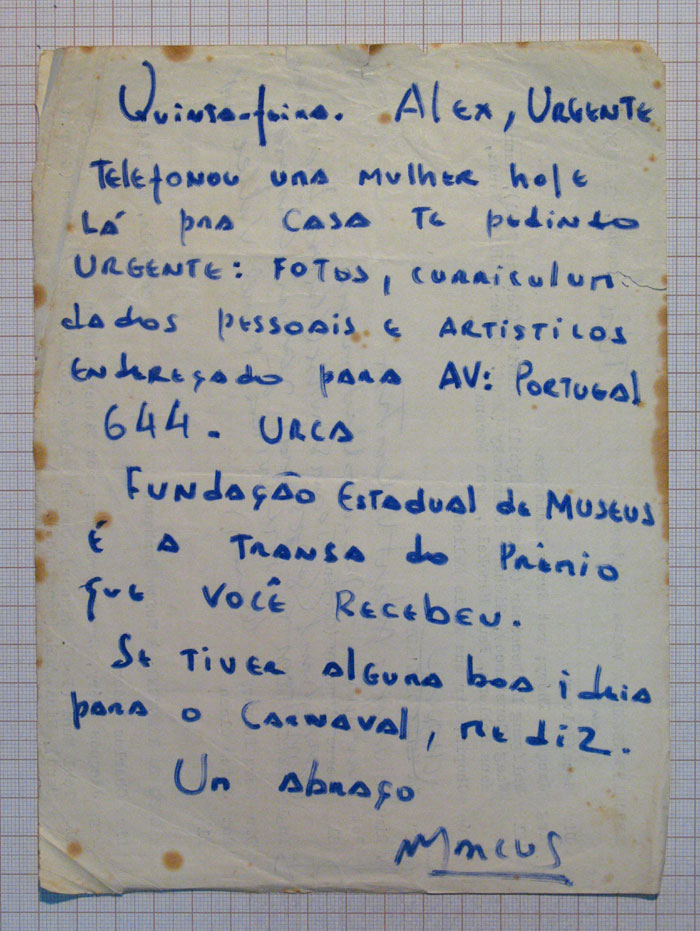 Quinta-feira. Alex, URGENTE
TELEfONOU UMA MULHER hOJE
LÁ pRA CASA TE pEDINDO
URGENTE: FOTOS, CURRICULUM
dAdOS pESSOAIS E ARTÍSTICOS
ENDEREÇADO pARA AV: PORTUGAL
644. URCA
FUNDAÇÃO ESTADUAL dE MUSEUS
É A TRANSA do PRÊMIO
quE VOCÊ RECEBEU.
SE TIVER ALGUMA boA idEIA
pARA O CARNAVAL, ME diZ.
UM AbRAÇO
MARCUS